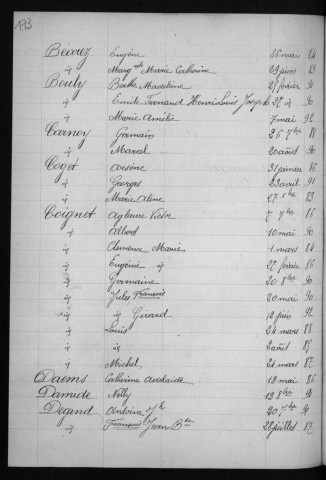 173
Béarez Eugène 28 mai 84
id Marg^te Marie Catherine 29 juin 83
Bouly Berthe Madeleine 27 février 90
id Emile Fernand Henri Louis Joseph 27 id 90
id Marie Amélie 7 mai 92
Carnoy Germain 26 7bre 88
id Marcel 20 août 90
Cogot Arsène 31 janvier 86
id Georges 23 avril 91
id Marie Aline 27 8bre 83
Coignet Aglaure Victor 7 7bre 86
id Albert 10 mai 90
id Clémence Marie 1 mars 84
id Eugénie id 27 février 86
id Germaine 20 8bre 90
id Jules François 20 mai 90
id id Girard 12 juin 92
id Louis 24 mars 88
id id 2 août 89
id Michel 24 mars 87
Daems Catherine Adelaïde 13 mai 86
Damiete Nelly 13 8bre 91
Degand Antoine Jh 20 7bre 91
id François Jean Bte 28 juillet 87